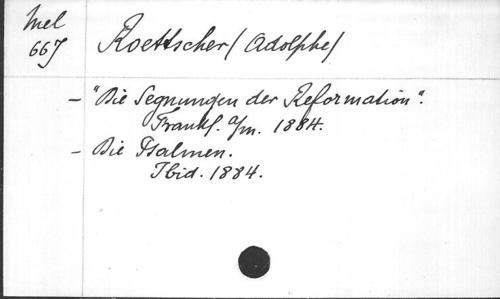 Mel
667
Roettscher (Adolphe)
- "Die Segnungen der Reformation".
Frankf. a/m. 1884.
- Die Psalmen.
Ibid. 1884.